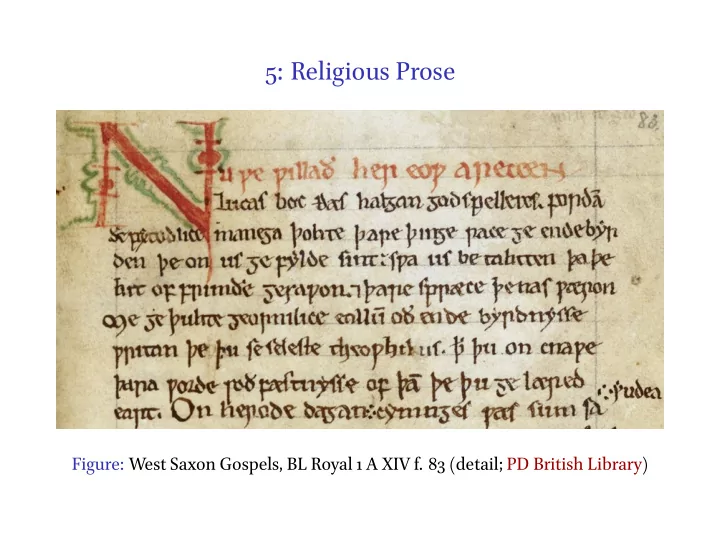 5: Religious Prose
83
Nu ƿe ƿillað her eoƿ arecceen
Lucas boc ðas halgan godspelleres. forðā
ƿitodlice manega þohte þare þinge race ge endebyr
den þe on us ge fylde sint. sƿa us be tahten þa þe
hit of frimðe gesaƿon. ⁊ þare spræce þenas ƿæron
Me ge þuhte geornlice eallū oð ende byrdnysse
ƿritan þe þu se seleste theophilus. ꝥ þu on cnaƿe
þara ƿorde soðfæstnysse of þā þe þu ge læred
eart. On herode dagan cyninges ƿas sum sa
iudea
Figure: West Saxon Gospels, BL Royal 1 A XIV f. 83 (detail; PD British Library)